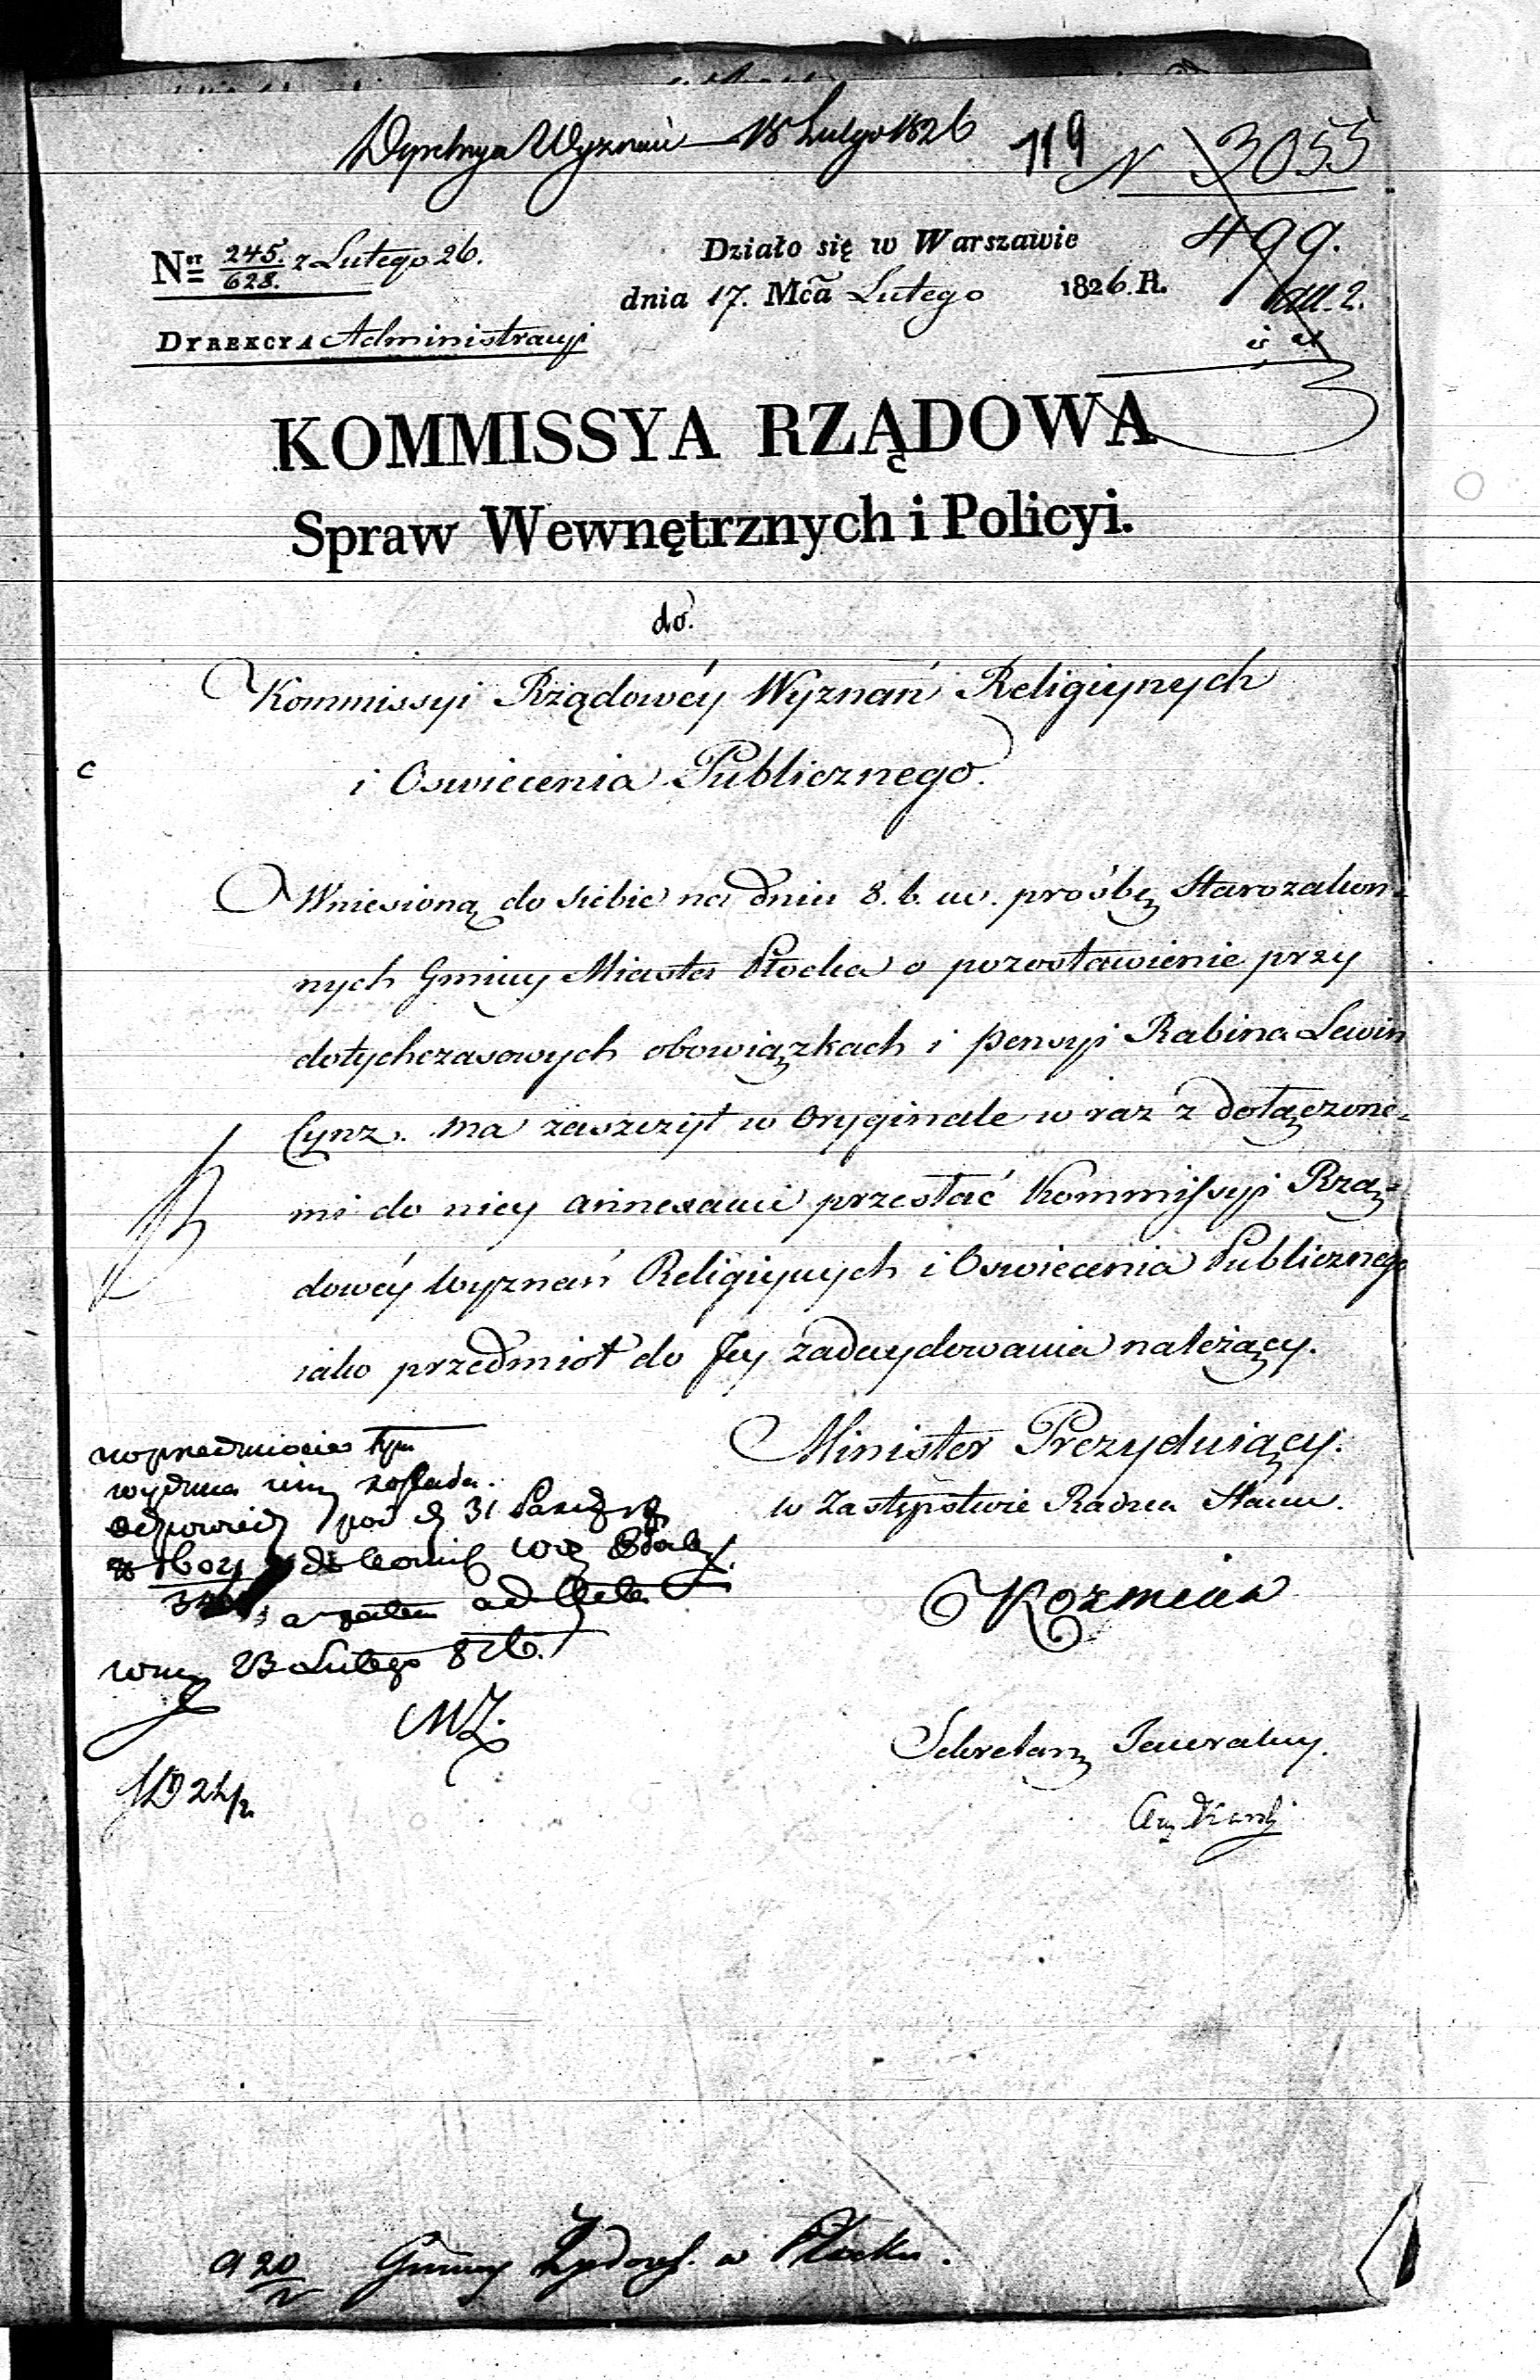 Dyrekcya Wyznań 18 Lutego 1826
119
N 3055
499.
ań. 2.
Nr 245./628. z Lutego 26.
Działo się w Warszawie
dnia 17. Mca Lutego 1826. R.
DYREKCYA Administracyi
KOMMISSYA RZĄDOWA
Spraw Wewnętrznych i Policyi.
do
Kommissyi Rządowéy Wyznań Religiynych
i Oswiecenia Publicznego.
Wniesioną do siebie na dniu 8. b. m. prośbę Starozakon=
nych Gminy Miasta Płocka o pozostawienie przy
dotychczasowych obowiązkach i pensyi Rabina Lewin
Cynz. ma zaszczyt w oryginale w raz z dołączone=
mi do niey annexami przesłać Kommissyi Rzą=
dowéy Wyznań Religiynych i Oswiecenia Publicznego
iako przedmiot do Jey zadecydowania należący.
Minister Prezyduiący.
w Zastępstwie Radca Stanu.
Kozmian
w przedmiocie tym
wydana iuż została
odpowiedź pod d 31
a zatem ad acta
23 Lutego 826.
MZ.
Sekretarz Jeneralny.
a 20/2 Gminy Żydows. w Płocku.